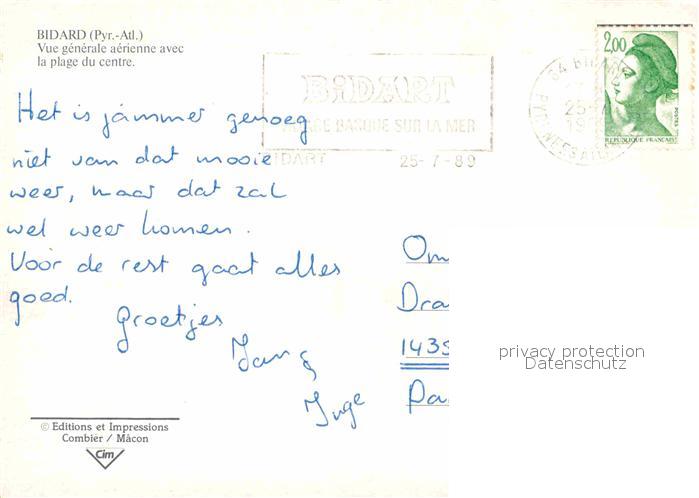 BIDARD (Pyr.-Atl.)
Vue générale aérienne avec
la plage du centre.
BIDART
BASQUE SUR LA MER
BIDART 25-7-89
2,00
POSTES
REPUBLIQUE FRANÇAISE
Het is jammer genoeg
niet van dat mooie
weer, maar dat zal
wel weer komen.
Voor de rest gaat alles
goed.
Groetjes
Inge
Om
Dra
1435
Pa
privacy protection
Datenschutz
© Editions et Impressions
Combier / Mâcon
Cim